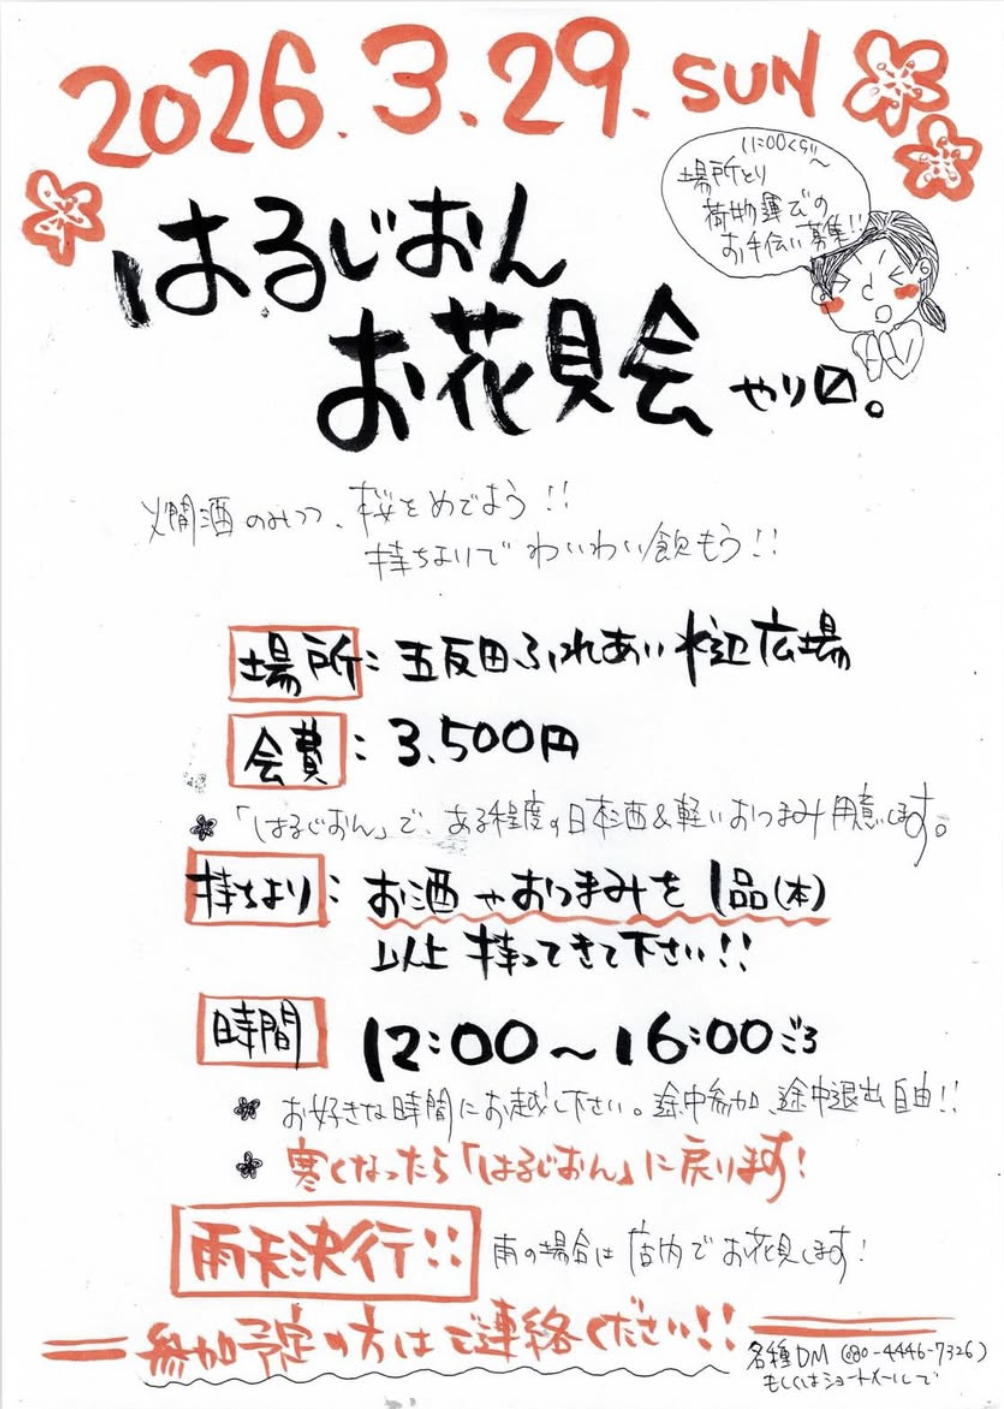 2026.3.29.SUN
11:00くらい〜
場所とり
荷物運びの
お手伝い募集!!
はるじおん
お花見会 やり〼。
燗酒のみつつ、桜をめでよう!!
持ちよりでわいわい飲もう!!
場所:五反田ふれあい水辺広場
会費:3,500円
「はるじおん」で、ある程度の日本酒&軽いおつまみ用意します。
持ちより:お酒やおつまみを1品(本)
以上持ってきて下さい!!
時間 12:00〜16:00ごろ
お好きな時間にお越し下さい。途中参加、途中退出自由!!
寒くなったら「はるじおん」に戻ります!
雨天決行!! 雨の場合は店内でお花見します!
参加予定の方はご連絡ください!!
各種DM(080-4446-7326)
もしくはショートメールで